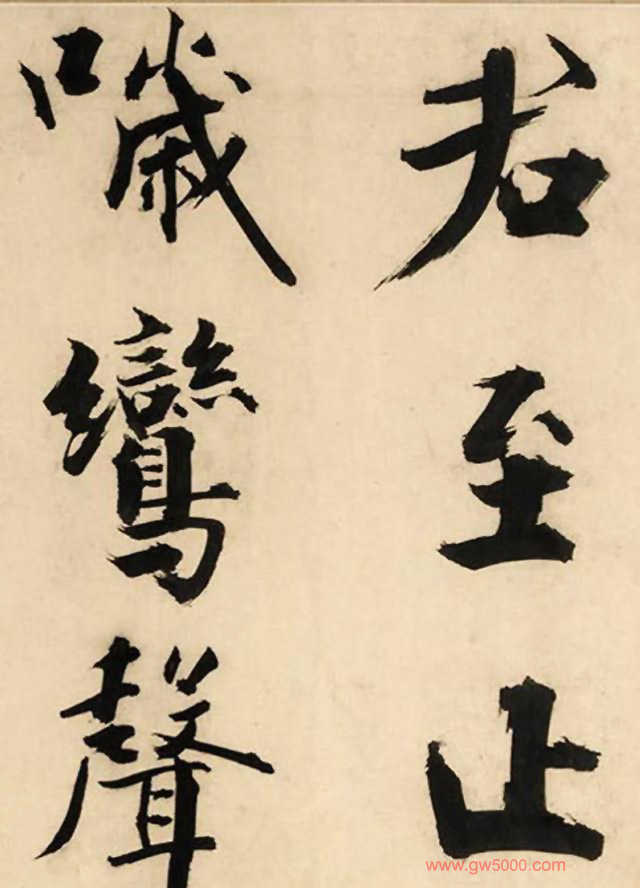 若至止
噦鸞聲
www.gw5000.com